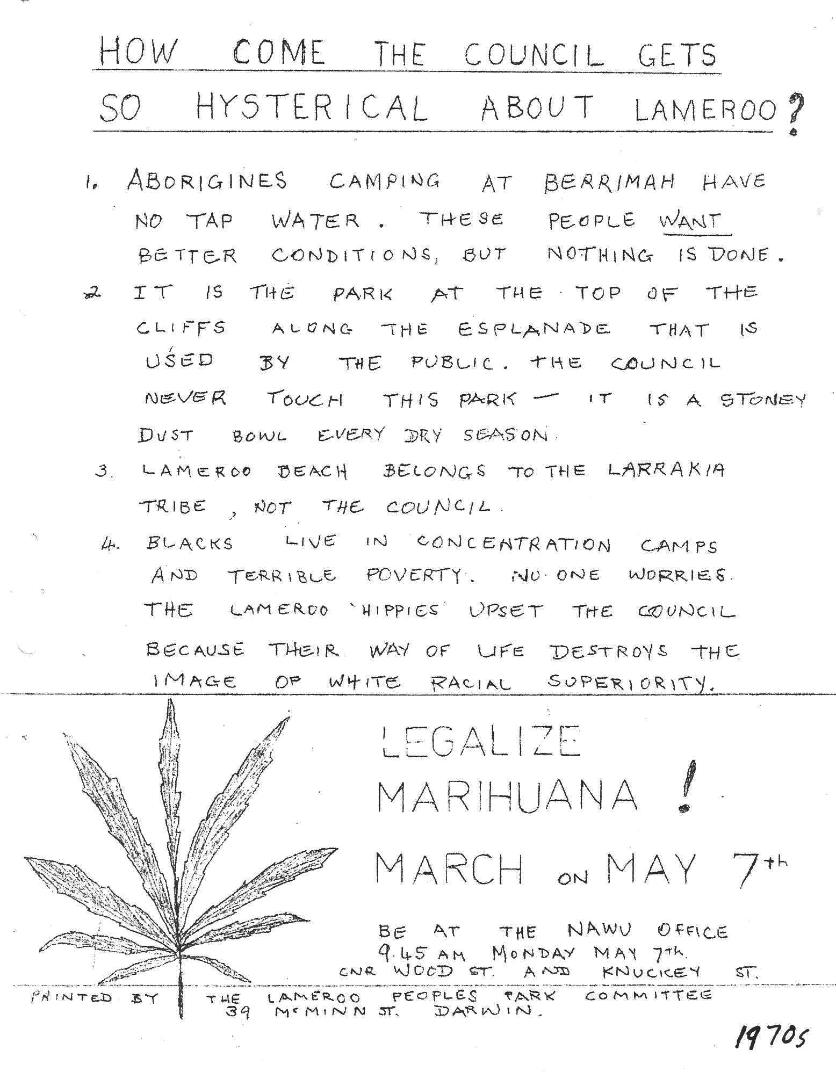 HOW COME THE COUNCIL GETS
SO HYSTERICAL ABOUT LAMEROO?
1. ABORIGINES CAMPING AT BERRIMAH HAVE
NO TAP WATER. THESE PEOPLE WANT
BETTER CONDITIONS, BUT NOTHING IS DONE.
2 IT IS THE PARK AT THE TOP OF THE
CLIFFS ALONG THE ESPLANADE THAT IS
USED BY THE PUBLIC. THE COUNCIL
NEVER TOUCH THIS PARK — IT IS A STONEY
DUST BOWL EVERY DRY SEASON.
3. LAMEROO BEACH BELONGS TO THE LARRAKIA
TRIBE, NOT THE COUNCIL.
4. BLACKS LIVE IN CONCENTRATION CAMPS
AND TERRIBLE POVERTY. NO ONE WORRIES.
THE LAMEROO 'HIPPIES' UPSET THE COUNCIL
BECAUSE THEIR WAY OF LIFE DESTROYS THE
IMAGE OF WHITE RACIAL SUPERIORITY.
LEGALIZE
MARIHUANA!
MARCH ON MAY 7th
BE AT THE NAWU OFFICE
9.45 AM MONDAY MAY 7th.
CNR WOOD ST. AND KNUCKEY ST.
PRINTED BY THE LAMEROO PEOPLES PARK COMMITTEE
39 McMINN ST. DARWIN.
1970s